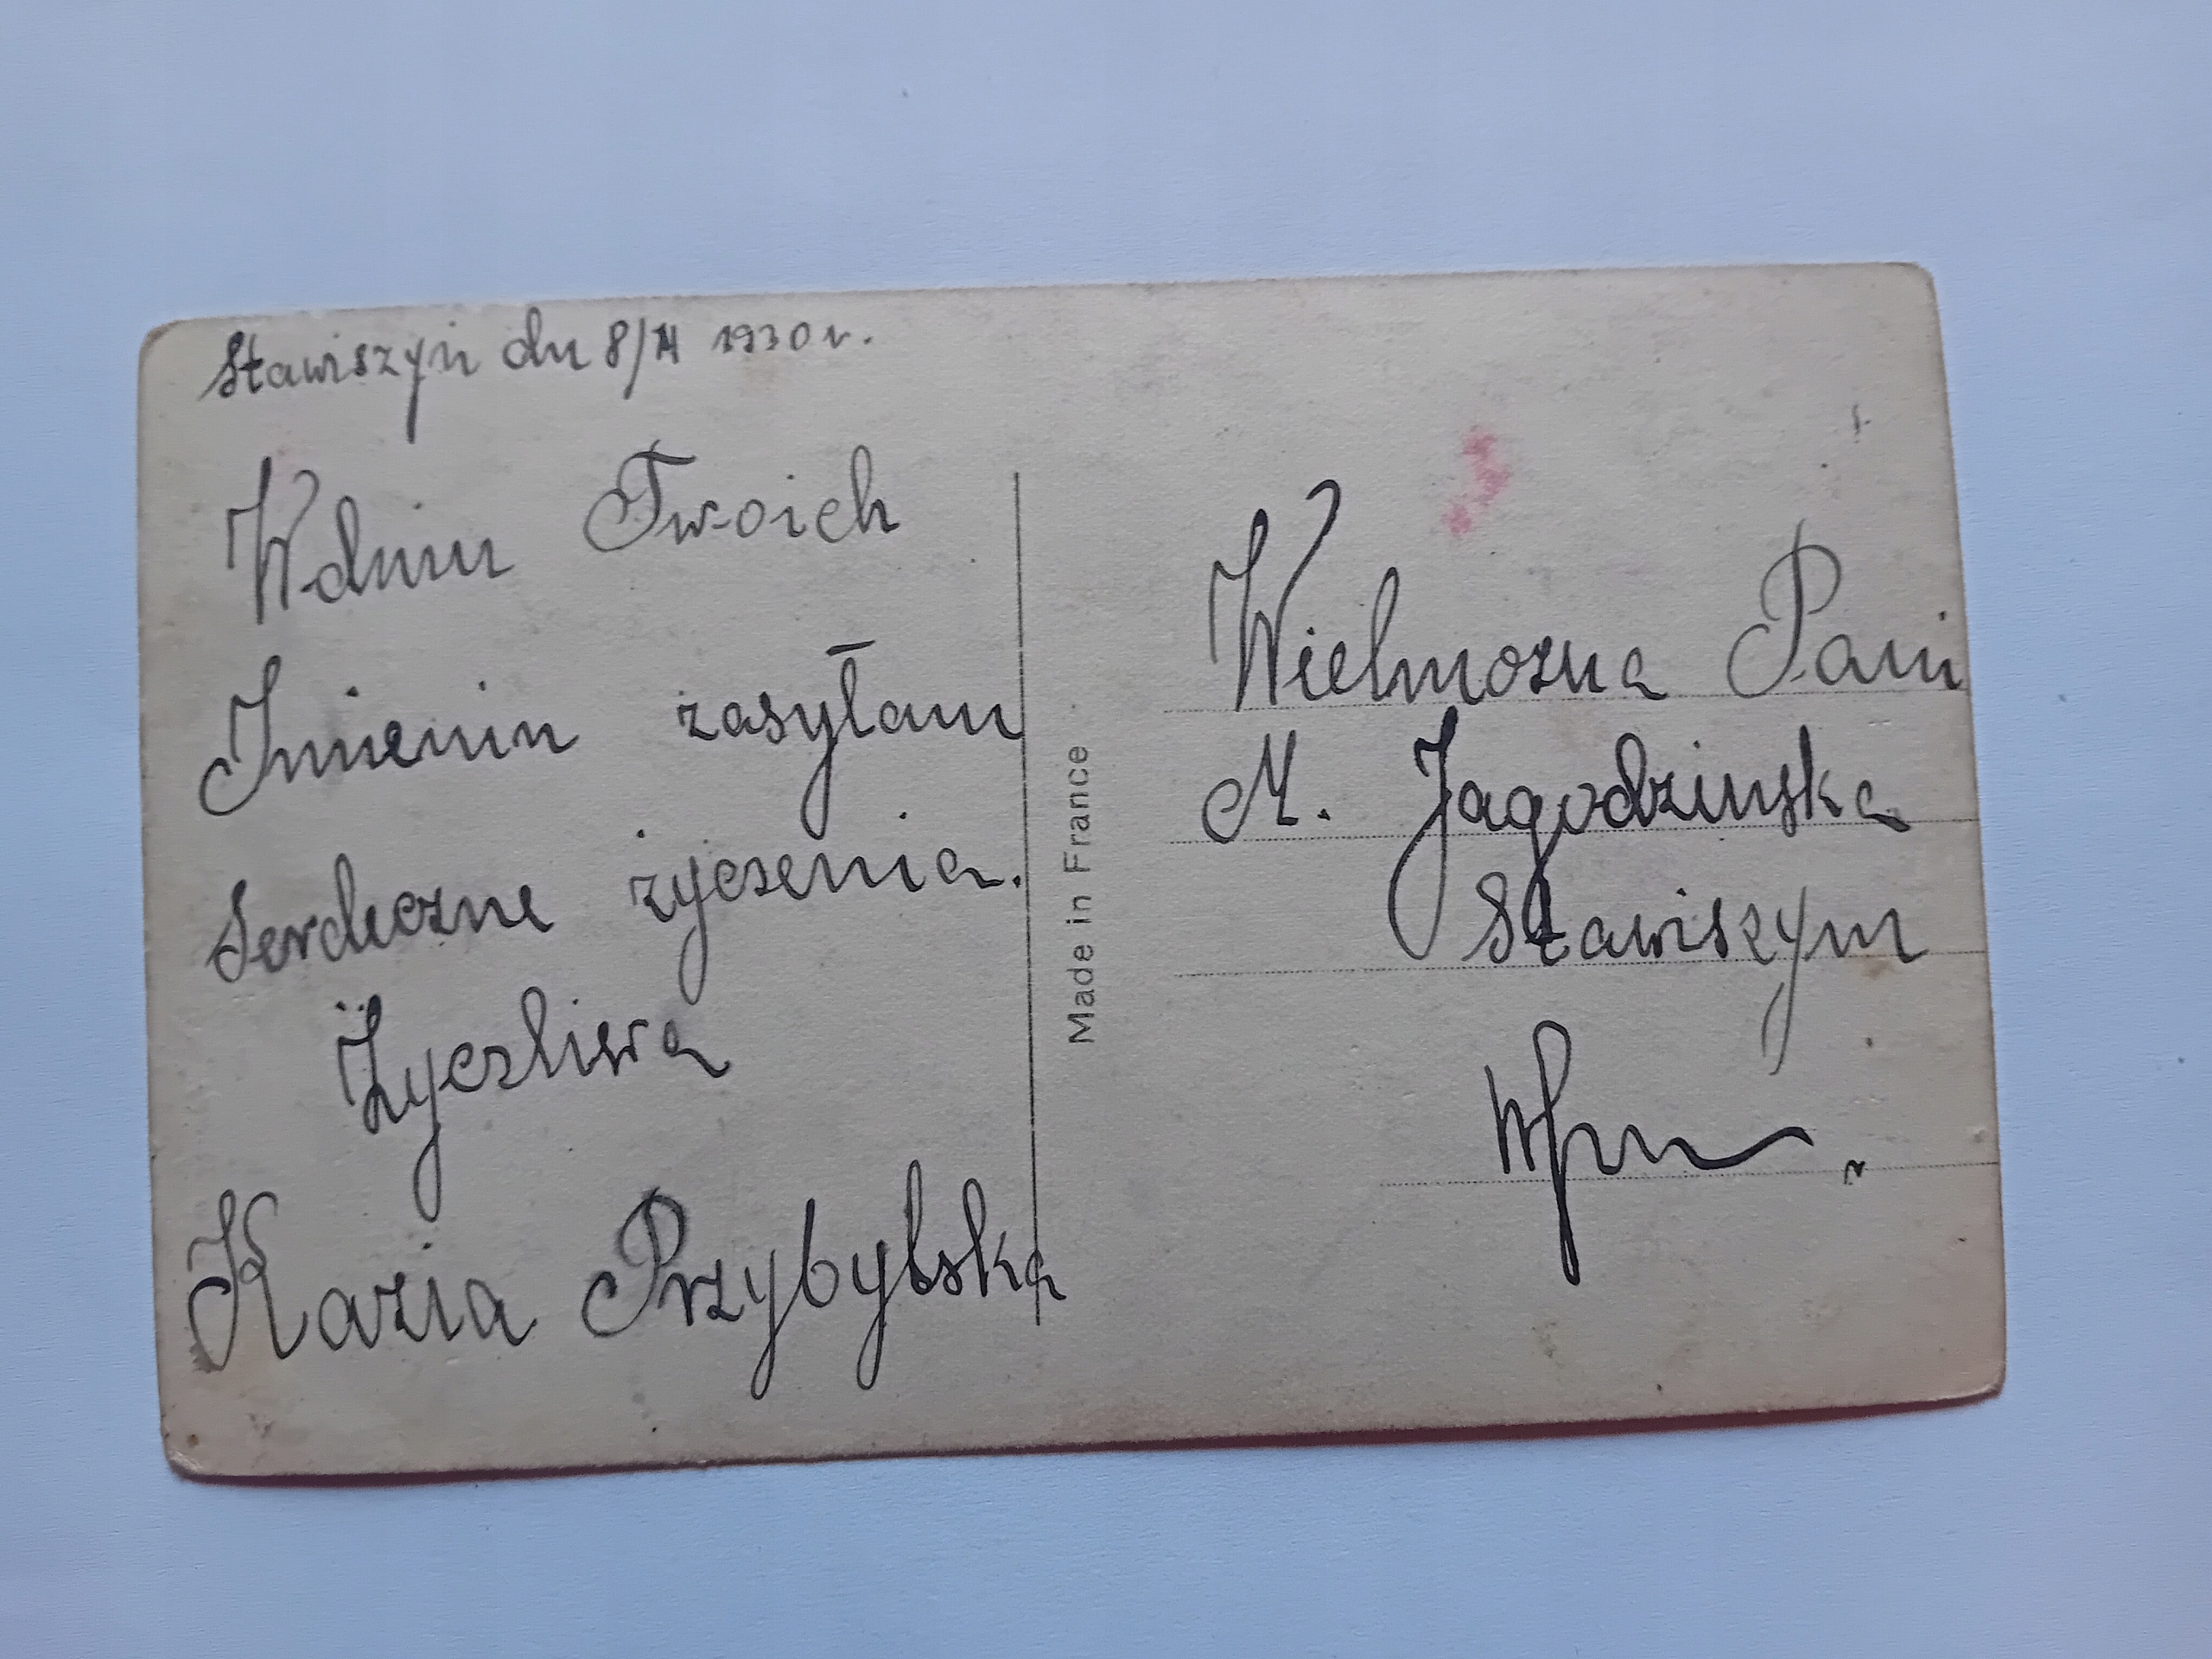 Stawiszyn dn 8/II 1930 r.
W dniu Twoich
Imienin zasyłam
serdeczne życzenia.
Życzliwa
Kazia Przybylska
Made in France
Wielmożna Pani
M. Jagodzinska
Stawiszyn